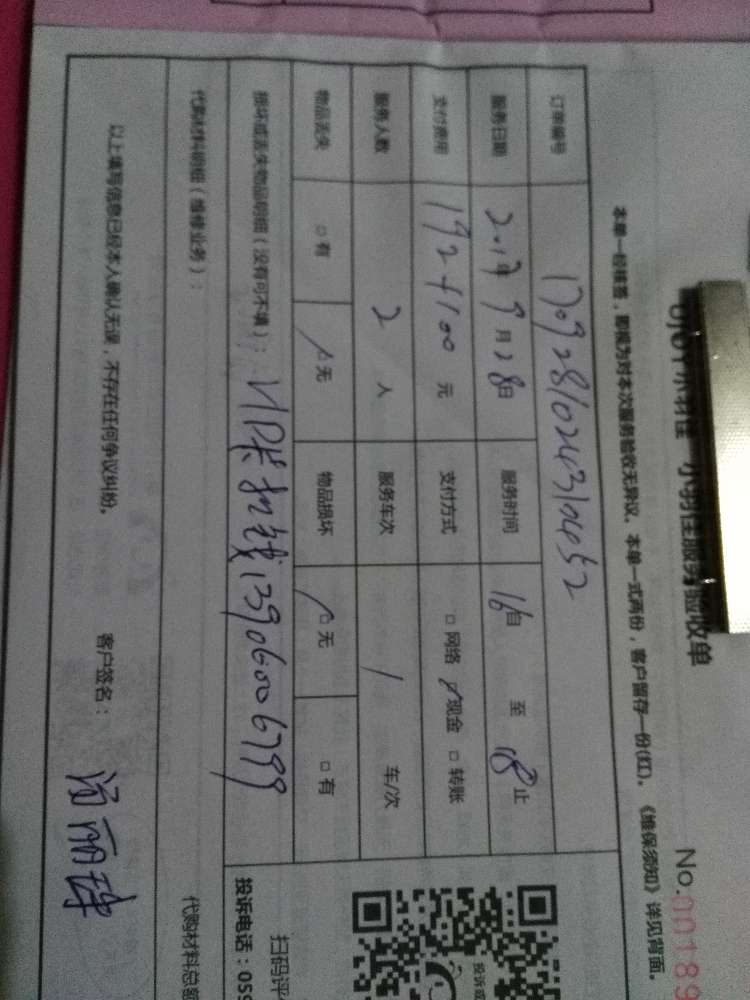 小羽佳服务验收单
No.00189
本单一经接签，即视为对本次服务验收无异议。本单一式两份，客户留存一份(红)。《维保须知》详见背面。
订单编号 1709281024310452
服务日期 2017年9月28日 服务时间 16自 至 18止
支付费用 192+100元 支付方式 □网络 ☑现金 □转账
服务人数 2人 服务车次 1 车/次
物品丢失 □有 ☑无 物品损坏 ☑无 □有
损坏或丢失物品明细（没有可不填）：VIP卡扣钱13906006799
代购材料明细（维修业务）：
代购材料总
以上填写信息已经本人确认无误，不存在任何争议纠纷。 客户签名：
扫码评
投诉电话：059
投诉或